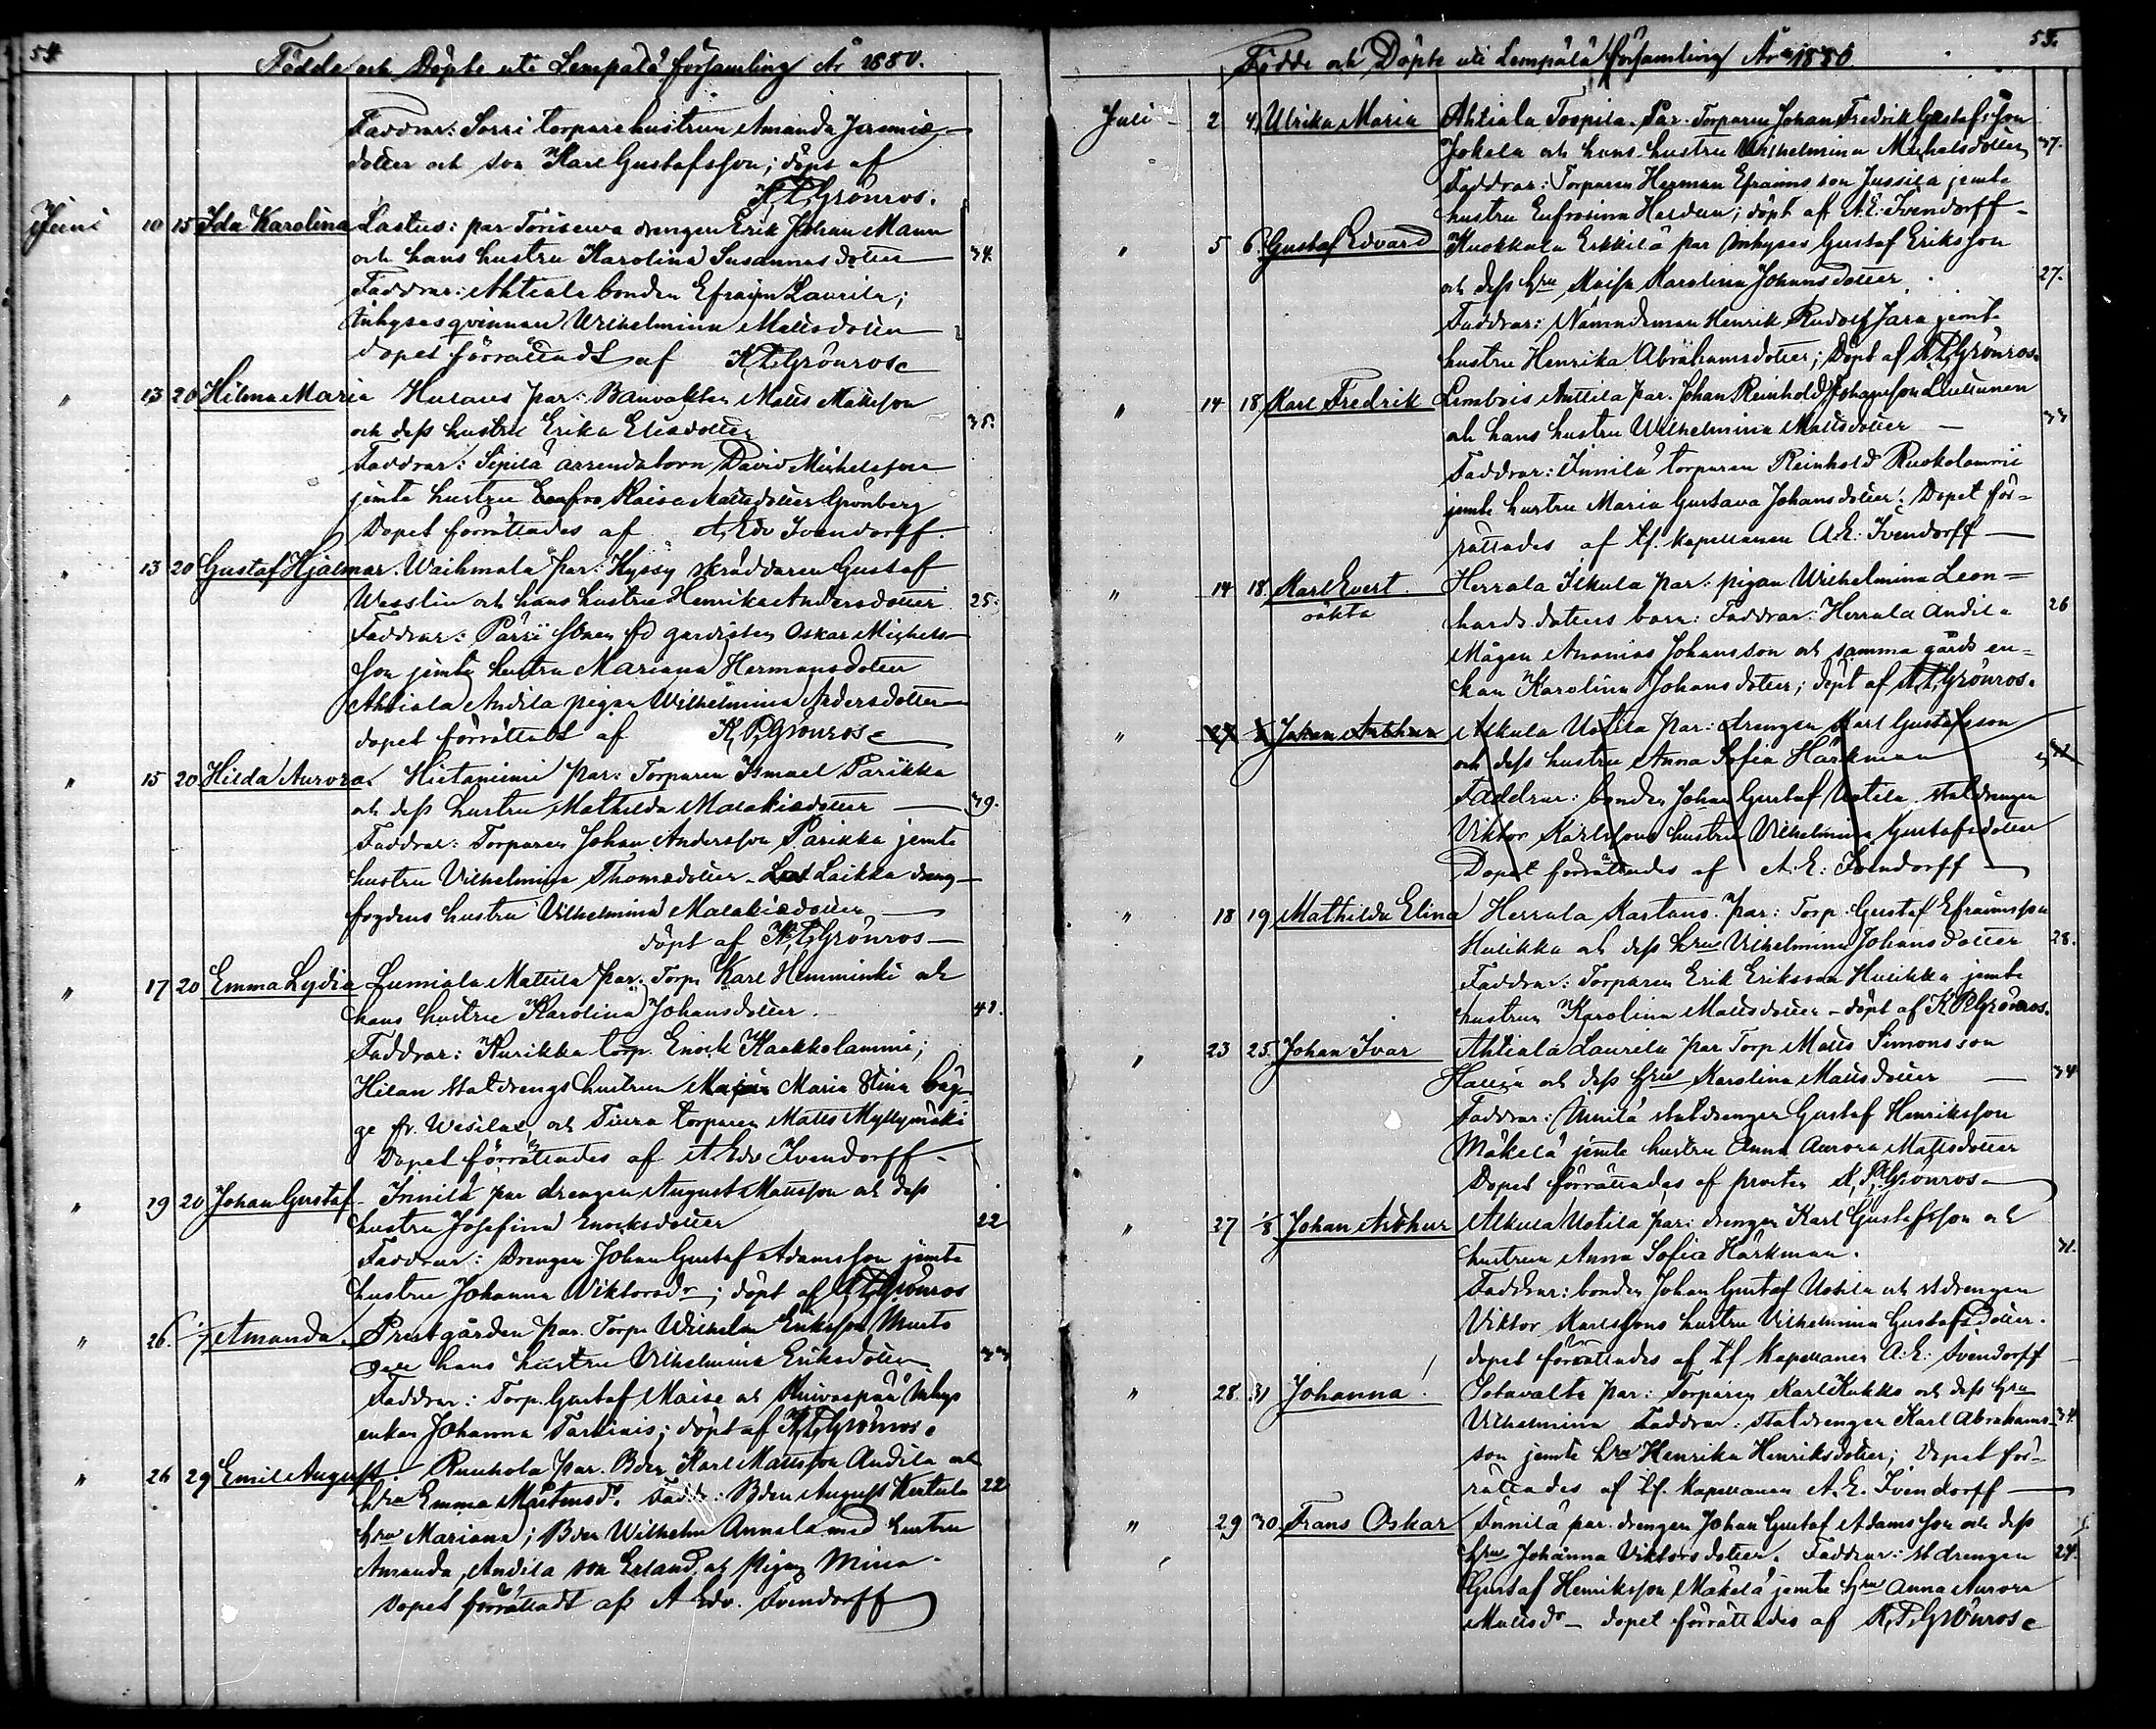 54
Födde och Döpte uti Lempälä församling År 1880.
Faddrar: Sorri torparehustrun Amanda Jeremie-
dotter och son Karl Gustafsson; döpt af
K. P. Grönros.
Juni 10 15 Ida Karolina Lastus: par Toriseva drengen Erik Johan Mann
och hans hustru Karolina Susannasdotter 34.
Faddrar: Ahtiala bonden Efraim Laurila;
Inhysesqvinnan Wilhelmina Mattsdotter
dopet förrättadt af K. P. Grönros
" 13 20 Hilma Maria Hulaus par: Banvakten Matts Mattsson
och dess hustru Erika Eliedotter 35.
Faddrar: Sipilä arrendatorn David Michelsson
jemte hustru Kaisa Mattsdotter Grönberg
Dopet förrättades af A. Edv Ivendorff.
" 13 20 Gustaf Hjalmar. Waihmala par: Hyssy skräddaren Gustaf
Wesslin och hans hustru Henrika Andersdotter 25.
Faddrar: Pärri sonen fd gardisten Oskar Michels-
son jemte hustru Mariana Hermansdotter
Ahtiala Andila pigan Wilhelmina Andersdotter
dopet förrättadt af K. P. Grönros
" 15 20 Hilda Aurora. Hietaniemi par: Torparen Ismael Parikka
och dess hustru Mathilda Malakiedotter 39.
Faddrar: Torparen Johan Andersson Parikka jemte
hustru Vilhelmina Thomedotter. Laikka dreng-
fogdens hustru Vilhelmina Malakiedotter
döpt af K. P. Grönros
" 17 20 Emma Lydia Lumiala Mattila par: Torp. Karl Hemminki och
hans hustru Karolina Johansdotter. 41.
Faddrar: Kurikka torp. Enok Kaakkolammi;
Hilan statdrengs hustrun Maria Stina båg-
ge fr. Wesilax, och Tiura torparen Matts Myllymäki
Dopet förrättades af A. Edv Ivendorff
" 19 20 Johan Gustaf Innilä par drengen August Mattsson och dess
hustru Josefina Enoksdotter 22
Faddrar: Drengen Johan Gustaf Adamsson jemte
hustru Johanna Viktorsdr; döpt af K. P. Grönros
" 26. Amanda. Prestgården par. Torp. Wilhelm Eriksson Murto
och hans hustru Vilhelmina Eriksdotter
Faddrar: Torp. Gustaf Maise och Kuivaspää Inhys
enkan Johanna; döpt af K. P. Grönros.
" 26 29 Emil August. Kuuhola par. Bden Karl Mattsson Andila och
hru Emma Mårtensdr. Faddr: Bden August Kertula 22
hru Mariana; Bden Wilhelm Annala med hustru
Amanda, Andila son Erland, och pigan Mina.
Dopet förrättadt af A Edv. Ivendorff
55.
Födde och Döpte uti Lempälä församling År 1880
Juli 2 4 Ulrika Maria Ahtiala Toopila. Par. Torparen Johan Fredrik Gustafsson
Jokela och hans hustru Wilhelmina Michelsdotter 37.
Faddrar: Torparen Herman Efraimsson Jussila jemte
hustru Eufrosina; döpt af A. E. Ivendorff
" 5 6. Gustaf Edvard Kuokkala Erkkilä par Inhyses Gustaf Eriksson
och dess hru Maija Karolina Johansdotter 27.
Faddrar: Nämndeman Henrik Rudolf Jara jemte
hustru Henrika Abrahamsdotter; Döpt af K. P. Grönros.
" 14 18 Karl Fredrik Lembois Anttila par. Johan Reinhold Johansson Luttunen
och hans hustru Wilhelmina Mattsdotter 33
Faddrar: Innilä torparen Reinhold Ruokolammi
jemte hustru Maria Gustava Johansdotter. Dopet för-
rättades af tf. kapellanen A. E. Ivendorff
" 14 18 Karl Evert. Herrala Ilkula par: pigan Wilhelmina Leon-
oäkta hardsdotters barn: Faddrar: Herrala Andila 26
Mågen Ananias Johansson och samma gårds en-
kan Karolina Johansdotter; döpt af K. P. Grönros.
" 27 Johan Arthur Alkula Uotila par: drengen Karl Gustafsson
och dess hustru Anna Sofia Härkman
Faddrar: bonden Johan Gustaf Uotila statdrengen
Viktor Karlssons hustru Vilhelmina Gustafsdotter
Dopet förrättades af A. E. Ivendorff
" 18 19 Mathilda Elina Herrala Kartano. par: Torp. Gustaf Efraimsson
Hulikka och dess hru Vilhelmina Johansdotter 28.
Faddrar: Torparen Erik Eriksson Hulikka jemte
hustrun Karolina Mattsdotter - döpt af K P Grönros.
" 23 25. Johan Ivar Ahtiala Laurila par Torp Matts Simonsson
och dess hru Karolina Mattsdotter 34
Faddrar: Innilä statdrengen Gustaf Henriksson
Mäkelä jemte hustru Anna Aurora Mattsdotter
Dopet förrättades af prosten K. P. Grönros
" 27 1/8 Johan Arthur Alkula Uotila par: drengen Karl Gustafsson och
hustrun Anna Sofia Härkman. 31.
Faddrar: bonden Johan Gustaf Uotila och stdrengen
Viktor Karlssons hustru Vilhelmina Gustafsdotter.
dopet förrättades af tf Kapellanen A. E. Ivendorff
" 28. 31 Johanna. Sotavalta par: Torparen Karl Kukko och dess hru
Vilhelmina Faddrar: statdrengen Karl Abrahams- 34.
son jemte hru Henrika Henriksdotter; Dopet för-
rättades af tf. kapellanen A. E. Ivendorff
" 29 30 Frans Oskar Innilä par. drengen Johan Gustaf Adamsson och dess
hru Johanna Viktorsdotter. Faddrar: stdrengen 24.
Gustaf Henriksson Mäkelä jemte hru Anna Aurora
Mattsdr - dopet förrättades af K. P. Grönros